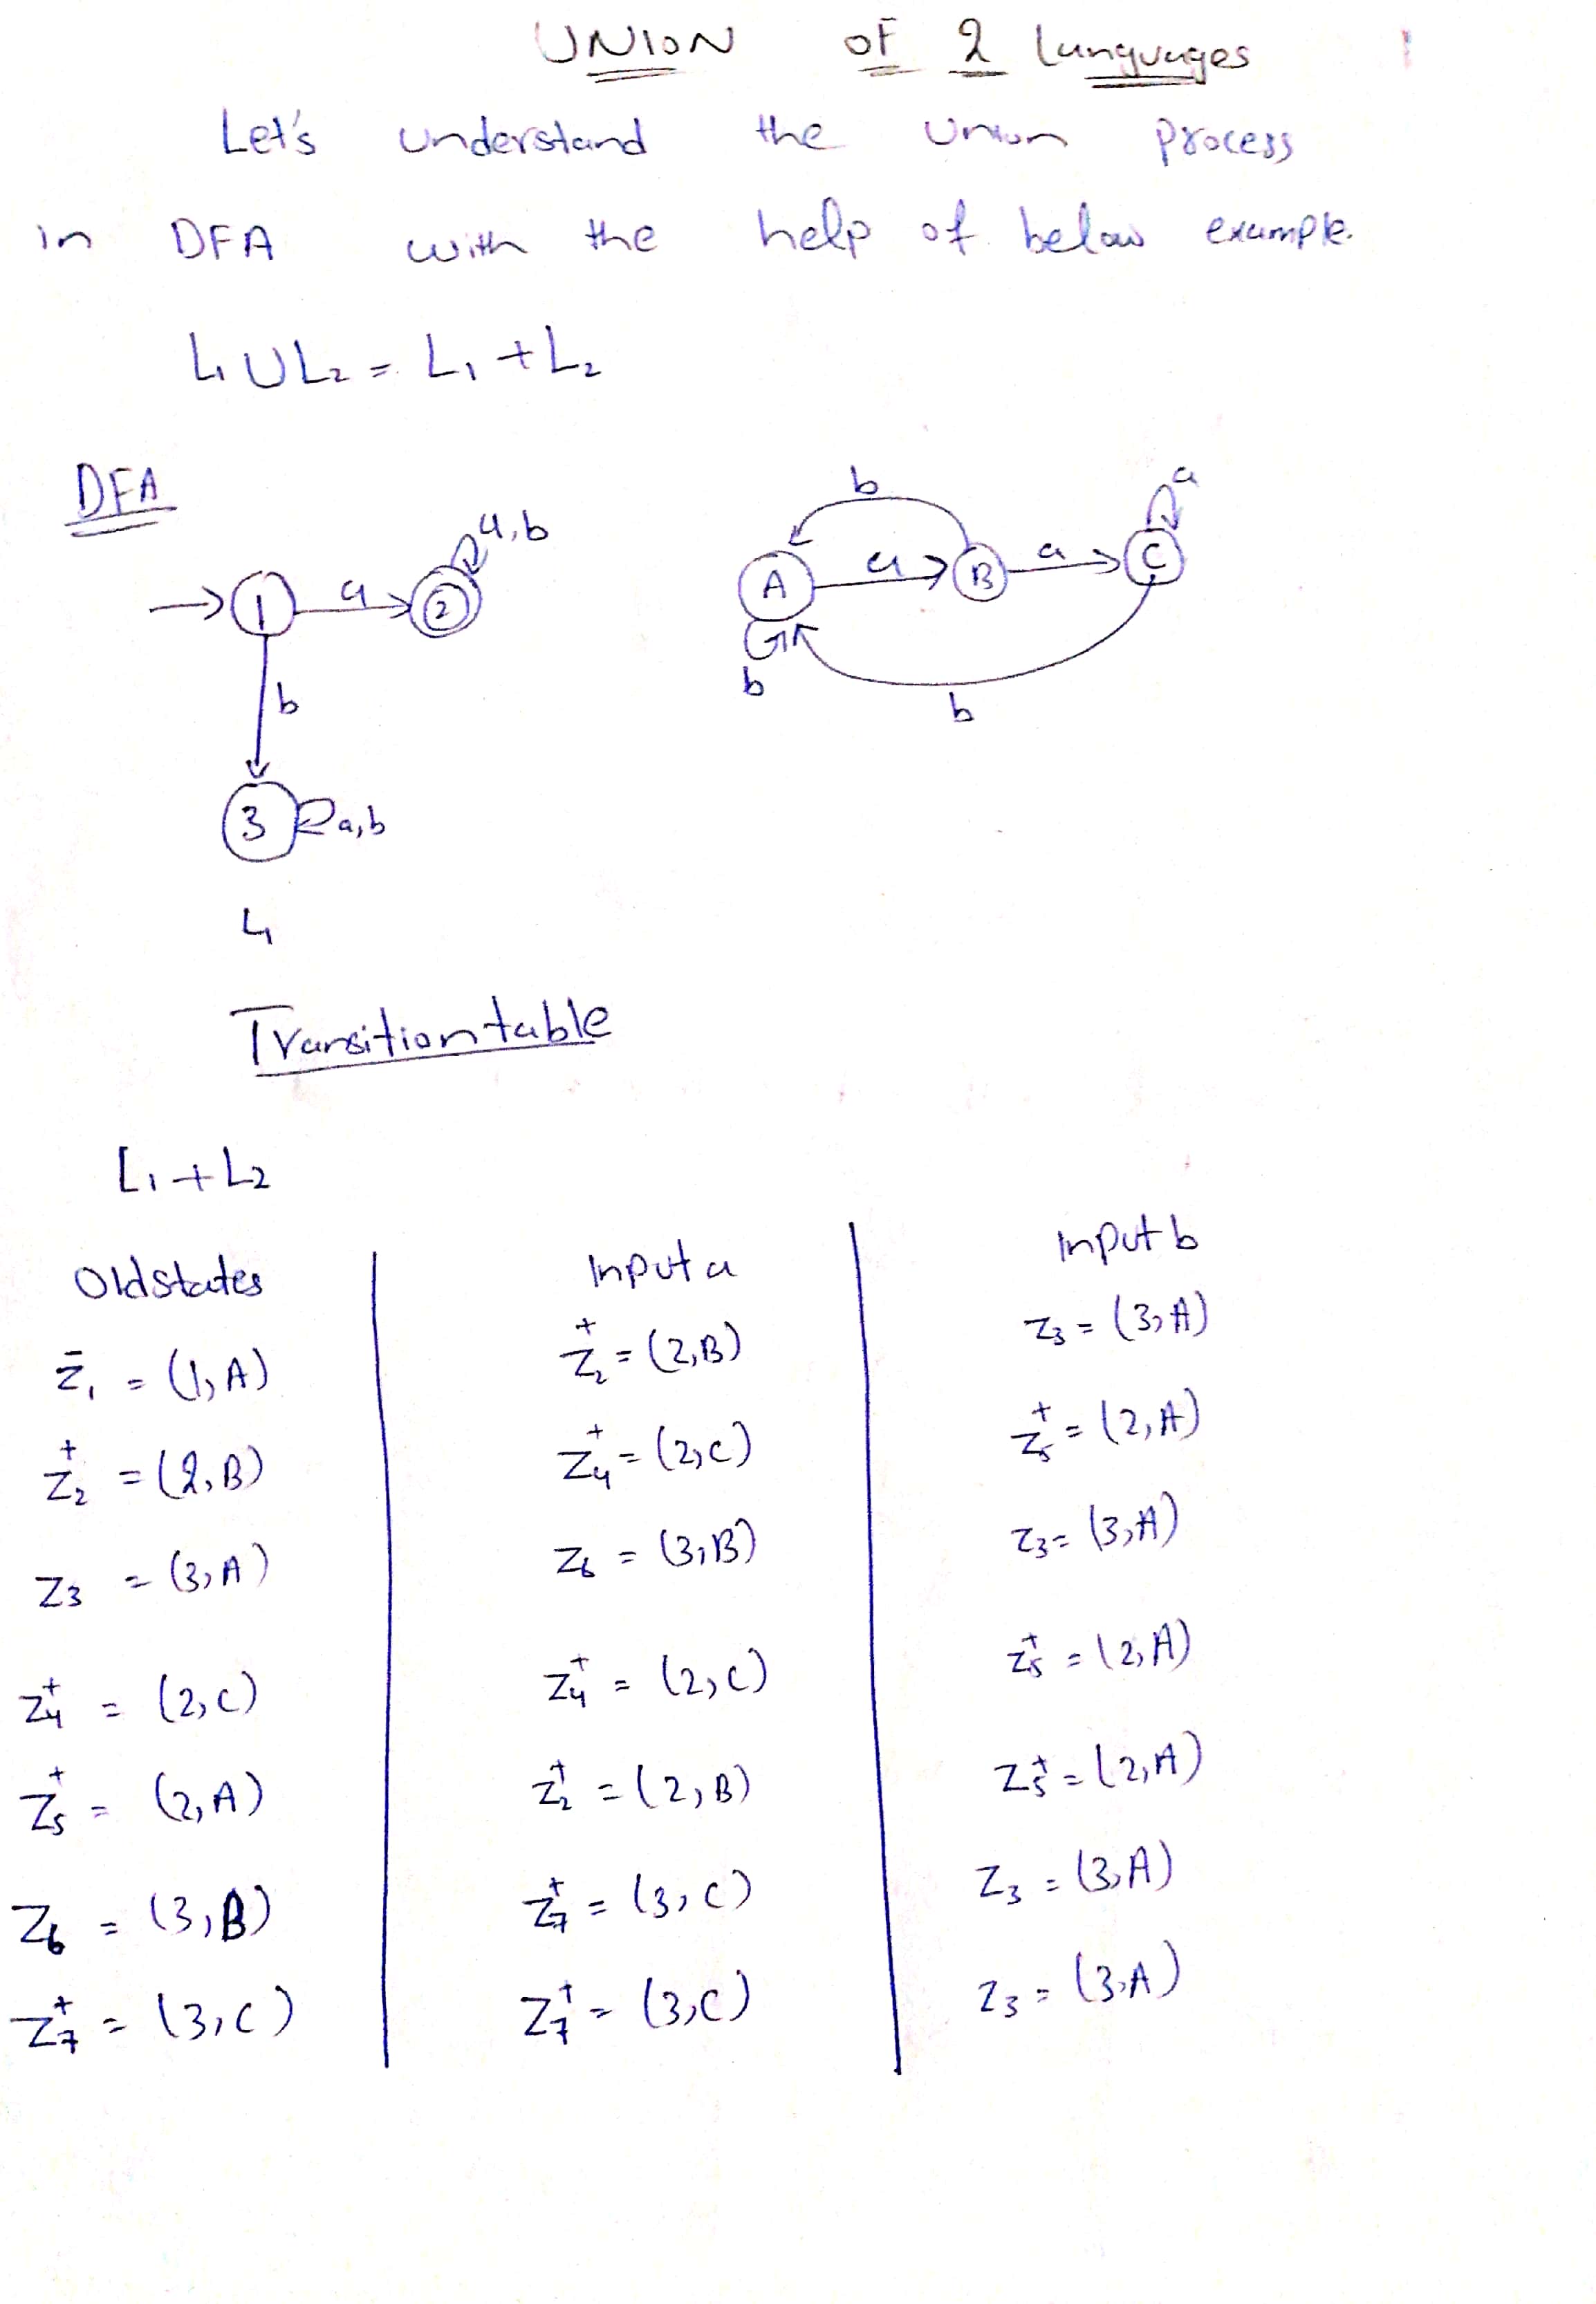 UNION OF 2 languages
Let's understand the Union Process
in DFA with the help of below example.
L₁ U L₂ = L₁ + L₂
DFA
a,b
1 a 2
b
3 a,b
L₁
b a
A a B a C
b
b
Transition table
L₁ + L₂
Old states Input a Input b
z₁⁻ = (1,A) z₂⁺ = (2,B) z₃ = (3,A)
z₂⁺ = (2,B) z₄⁺ = (2,C) z₅⁺ = (2,A)
z₃ = (3,A) z₆ = (3,B) z₃ = (3,A)
z₄⁺ = (2,C) z₄⁺ = (2,C) z₅⁺ = (2,A)
z₅⁺ = (2,A) z₂⁺ = (2,B) z₅⁺ = (2,A)
z₆ = (3,B) z₇⁺ = (3,C) z₃ = (3,A)
z₇⁺ = (3,C) z₇⁺ = (3,C) z₃ = (3,A)